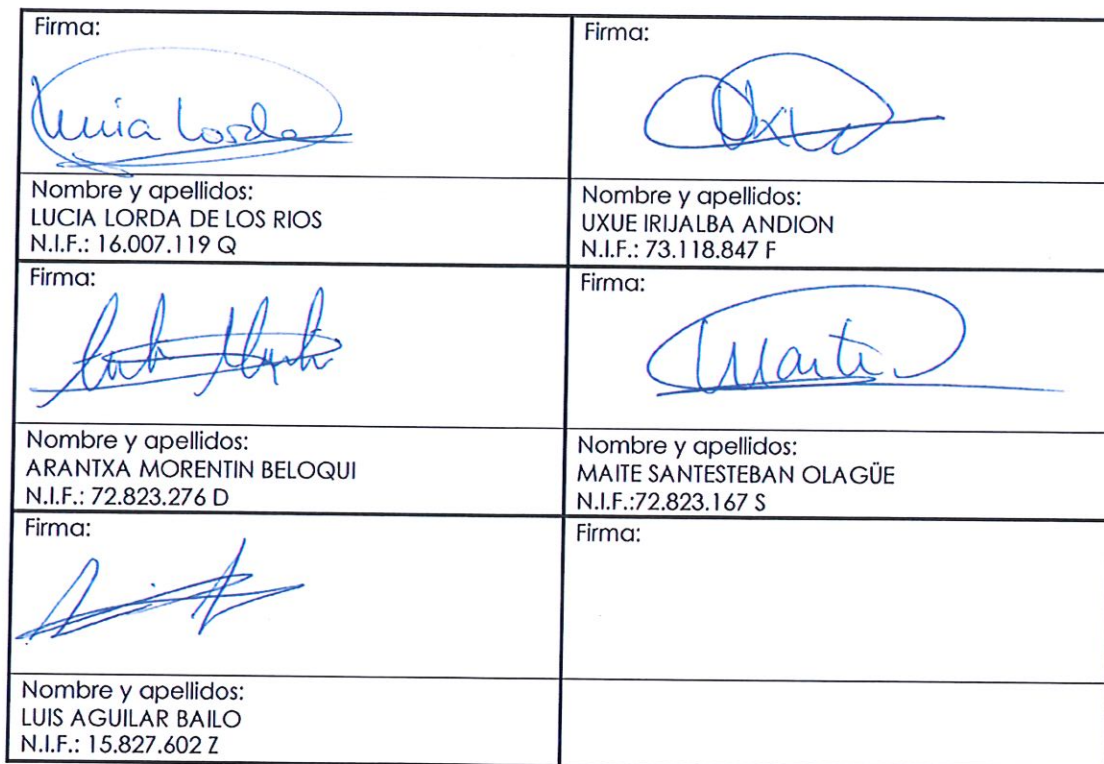 Firma:
Lucia Lorda
Nombre y apellidos:
LUCIA LORDA DE LOS RIOS
N.I.F.: 16.007.119 Q
Firma:
Uxue
Nombre y apellidos:
UXUE IRIJALBA ANDION
N.I.F.: 73.118.847 F
Firma:
Nombre y apellidos:
ARANTXA MORENTIN BELOQUI
N.I.F.: 72.823.276 D
Firma:
Maite
Nombre y apellidos:
MAITE SANTESTEBAN OLAGÜE
N.I.F.:72.823.167 S
Firma:
Nombre y apellidos:
LUIS AGUILAR BAILO
N.I.F.: 15.827.602 Z
Firma: